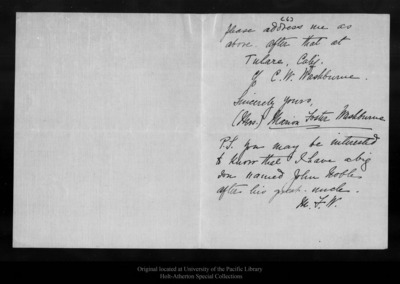 (6)
Please address me as
above. After that at
Tulare, Calif.
C. W. Washburne.
Sincerely yours,
(Mrs.) Marion Foster Washburne
P.S. You may be interested
to know that I have a big
son named John Noble
after his great-uncle.
M. F. W.
Original located at University of the Pacific Library
Holt-Atherton Special Collections